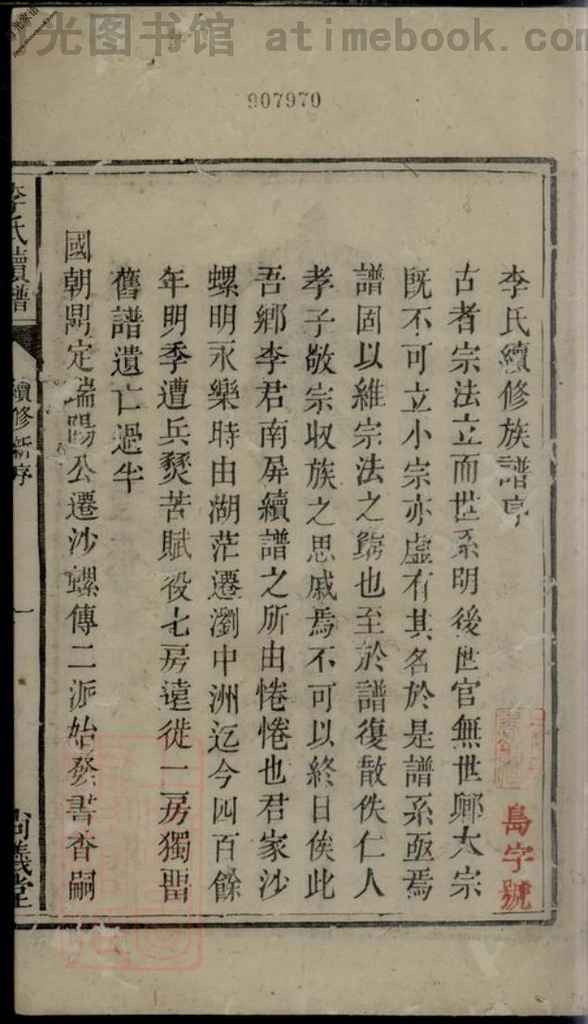 光图书馆 atimebook.com
907970
李氏續修族譜序
古者宗法立而世系明後世官無世卿大宗
既不可立小宗亦虛有其名於是譜系亟焉
譜固以維宗法之窮也至於譜復散佚仁人
孝子敬宗收族之思戚焉不可以終日俟此
吾鄉李君南屏續譜之所由惓惓也君家沙
螺明永樂時由湖茫遷瀏中洲迄今四百餘
年明季遭兵燹苦賦役七房遠徙一房獨畱
舊譜遺亡過半
國朝鼎定瑞陽公遷沙螺傳二派始發書香嗣
島字號
李氏續譜
續修新序
一
尚義堂